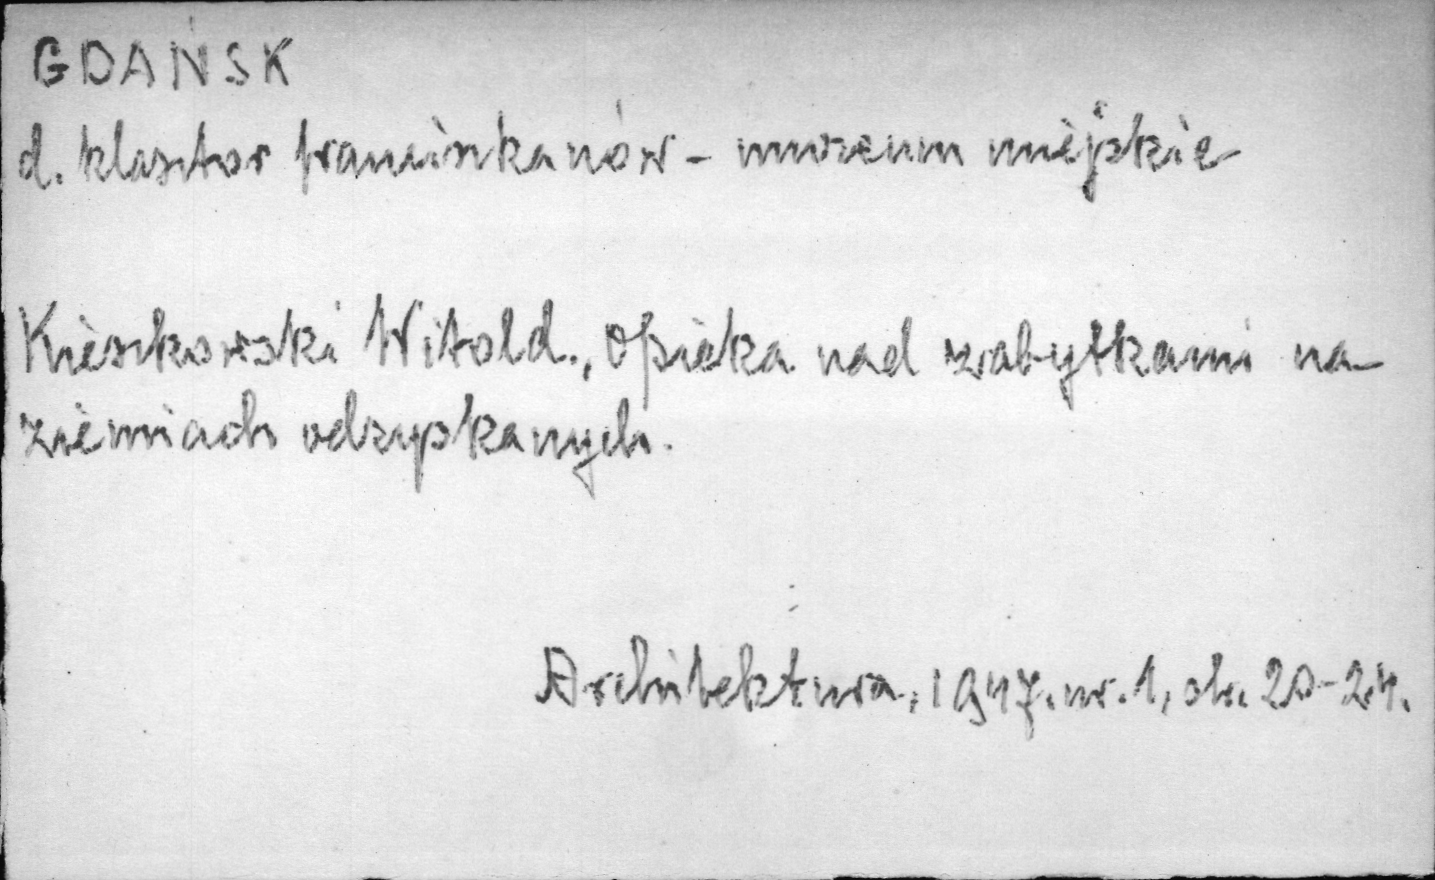 GDAŃSK
d. klasztor franciszkanów - muzeum miejskie
Kieszkowski Witold., Opieka nad zabytkami na
ziemiach odzyskanych.
Architektura, 1947. nr. 1, str. 20-24.